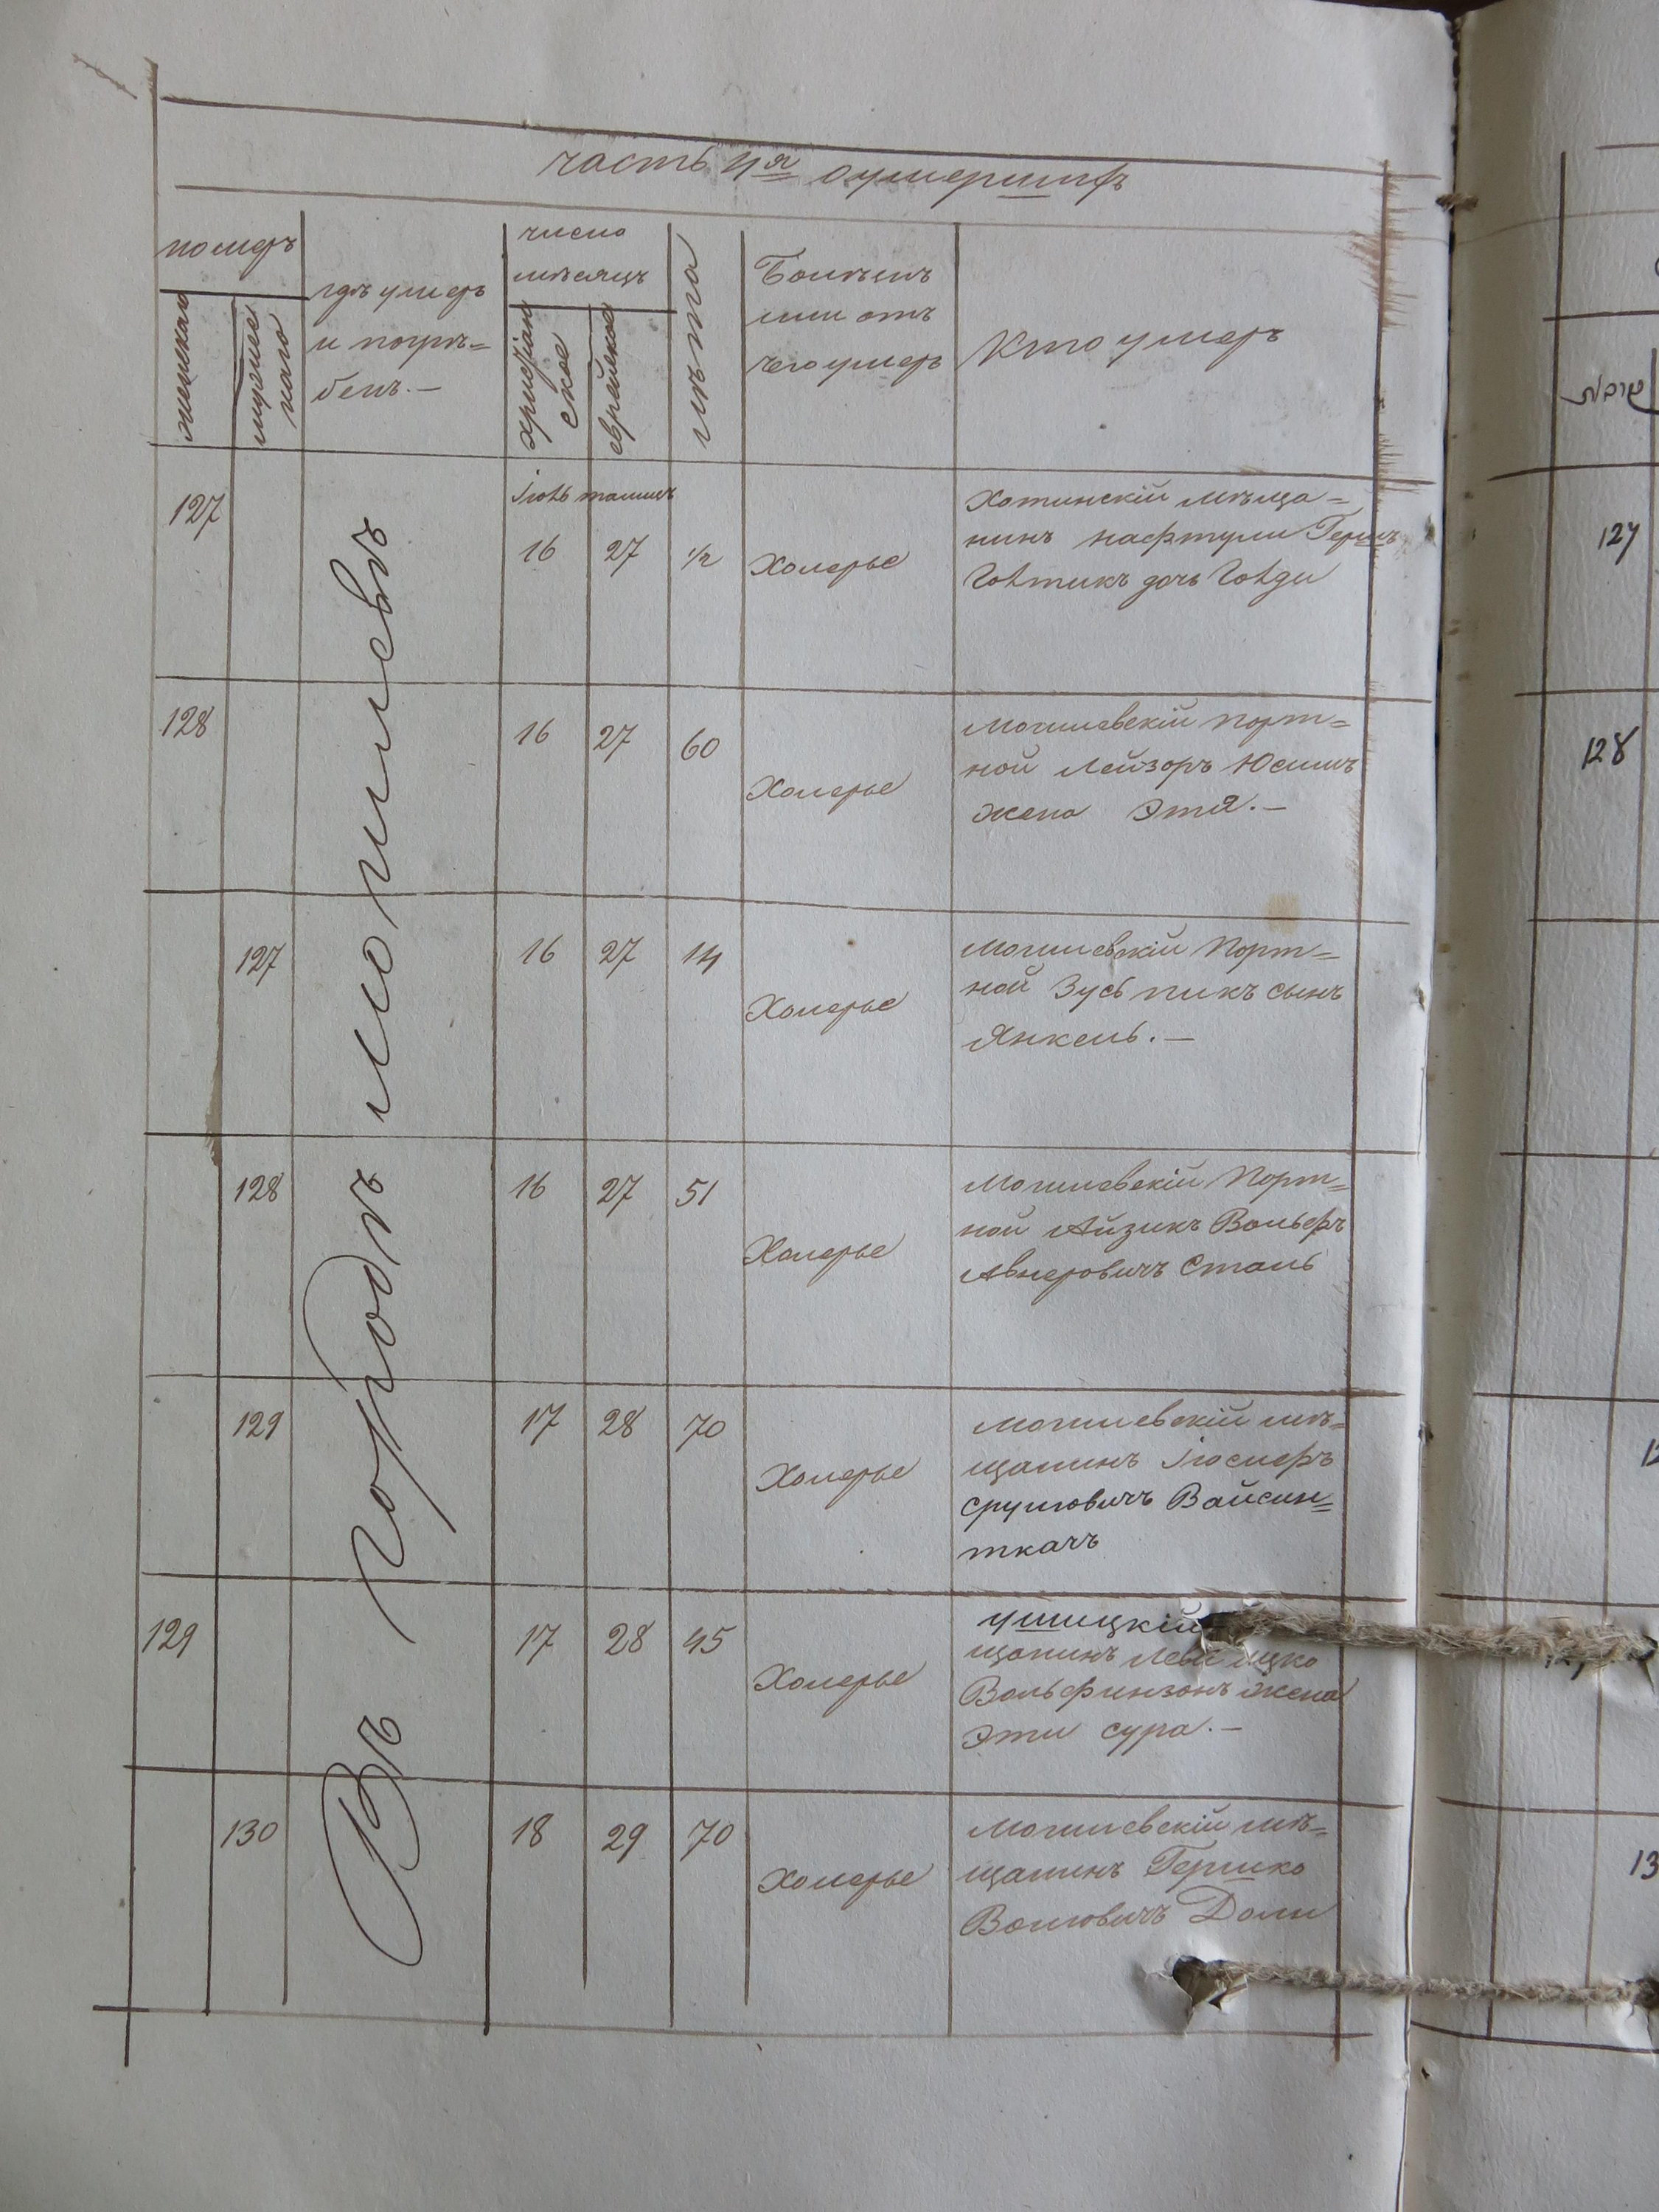 часть 4я о умершихъ
номеръ
женскаго
мужеск
каго
гдѣ умеръ
и погрѣ=
бенъ.—
число
мѣсяцъ
христіан
ское
еврейское
лѣта
Болѣзнь
или отъ
чего умеръ
Кто умеръ
Въ городѣ могилевѣ
127
16 27 1/2
Холерье
Хотинскій мѣща=
нинъ нафтули Гершъ
дочь
128
16 27 60
Холерье
могилевскій порт=
ной Лейзоръ Юсимъ
жена Этя.—
127
16 27 14
Холерье
могилевскій Порт=
ной Зусь пикъ сынъ
Янкель.—
128
16 27 51
Холерье
Могилевскій Порт=
ной Айзикъ Вольфъ
Авнеровичъ Сталь
129
17 28 70
Холерье
могилевскій мѣ=
щанинъ Іюсифъ
Срулювичъ Вайсин=
ткачъ
129
17 28 45
Холерье
ушицкій
щанинъ
Вольфинзонъ жена
Эти сура.—
130
18 29 70
Холерье
могилевскій мѣ=
щанинъ Гершко
Волювичъ Доли
127
128